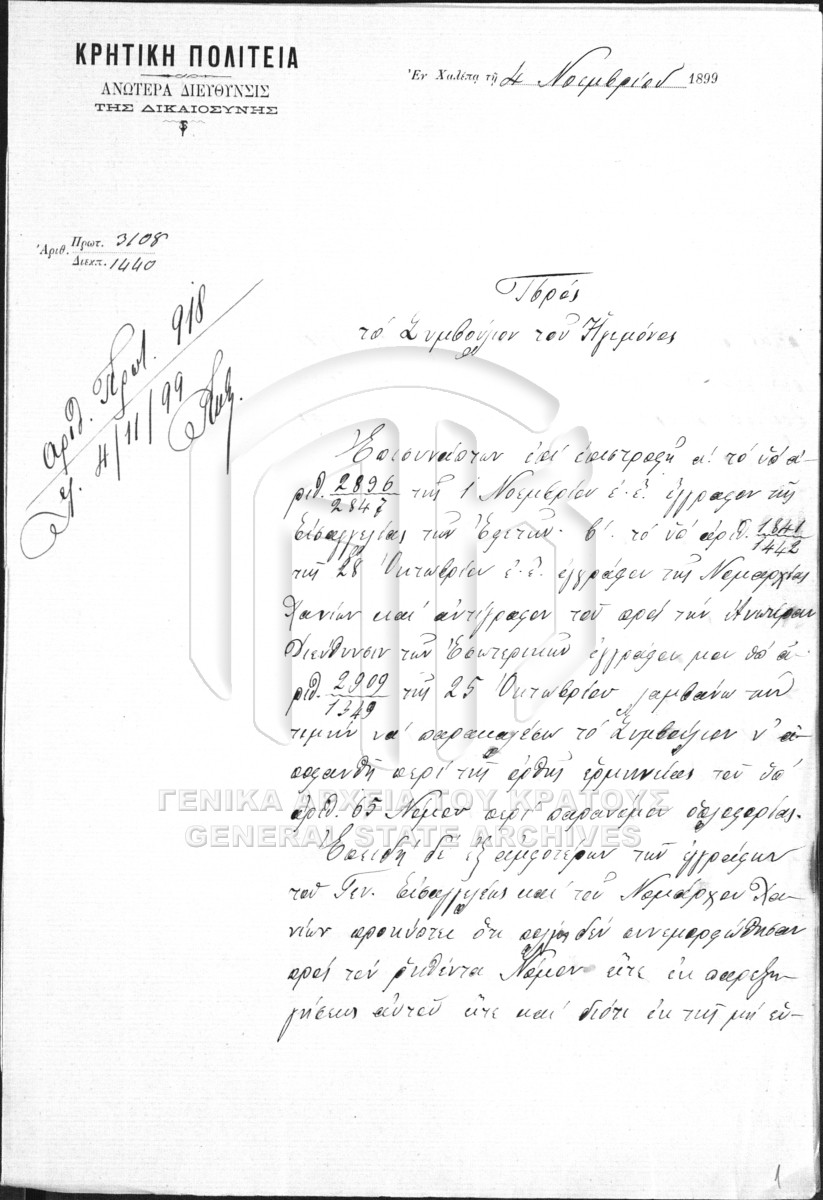 ΚΡΗΤΙΚΗ ΠΟΛΙΤΕΙΑ
ΑΝΩΤΕΡΑ ΔΙΕΥΘΥΝΣΙΣ
ΤΗΣ ΔΙΚΑΙΟΣΥΝΗΣ
Ἐν Χαλέπᾳ τῇ 4 Νοεμβρίου 1899
Ἀριθ. Πρωτ. 3108
Διεκπ. 1440
Αριθ. Πρωτ. 918
4/11/99
Πρός
τό Συμβούλιον τοῦ Ἡγεμόνος
Ἐπισυνάπτων ἐπί ἐπιστροφῇ α΄. τό ὑπ' ἀ-
ριθ. 2896/2847 τῆς 1 Νοεμβρίου ἐ. ἔ. ἔγγραφον τῆς
Εἰσαγγελίας τῶν Ἐφετῶν· β΄. τό ὑπ' ἀριθ. 1841/1442
τῆς 28 Ὀκτωβρίου ἐ. ἔ. ἔγγραφον τῆς Νομαρχίας
Χανίων καί ἀντίγραφον τοῦ πρός τήν Ἀνωτέραν
Διεύθυνσιν τῶν Ἐσωτερικῶν ἐγγράφου μου ὑπ' ἀ-
ριθ. 2909/1349 τῆς 25 Ὀκτωβρίου λαμβάνω τήν
τιμήν νά παρακαλέσω τό Συμβούλιον ν' ἀ-
ποφανθῇ περί τῆς ὀρθῆς ἑρμηνείας τοῦ ὑπ'
ἀριθ. 65 Νόμου περί παρανόμου ὁπλοφορίας.
Ἐπειδή δέ ἐξ ἀμφοτέρων τῶν ἐγγράφων
τοῦ Γεν. Εἰσαγγελέως καί τοῦ Νομάρχου Χα-
νίων προκύπτει ὅτι πολλοί δέν συνεμορφώθησαν
πρός τόν ῥηθέντα Νόμον εἴτε ἐκ παρεξη-
γήσεως αὐτοῦ εἴτε καί διότι ἐκ τῆς μή εὐ-
ΓΕΝΙΚΑ ΑΡΧΕΙΑ ΤΟΥ ΚΡΑΤΟΥΣ
GENERAL STATE ARCHIVES
1